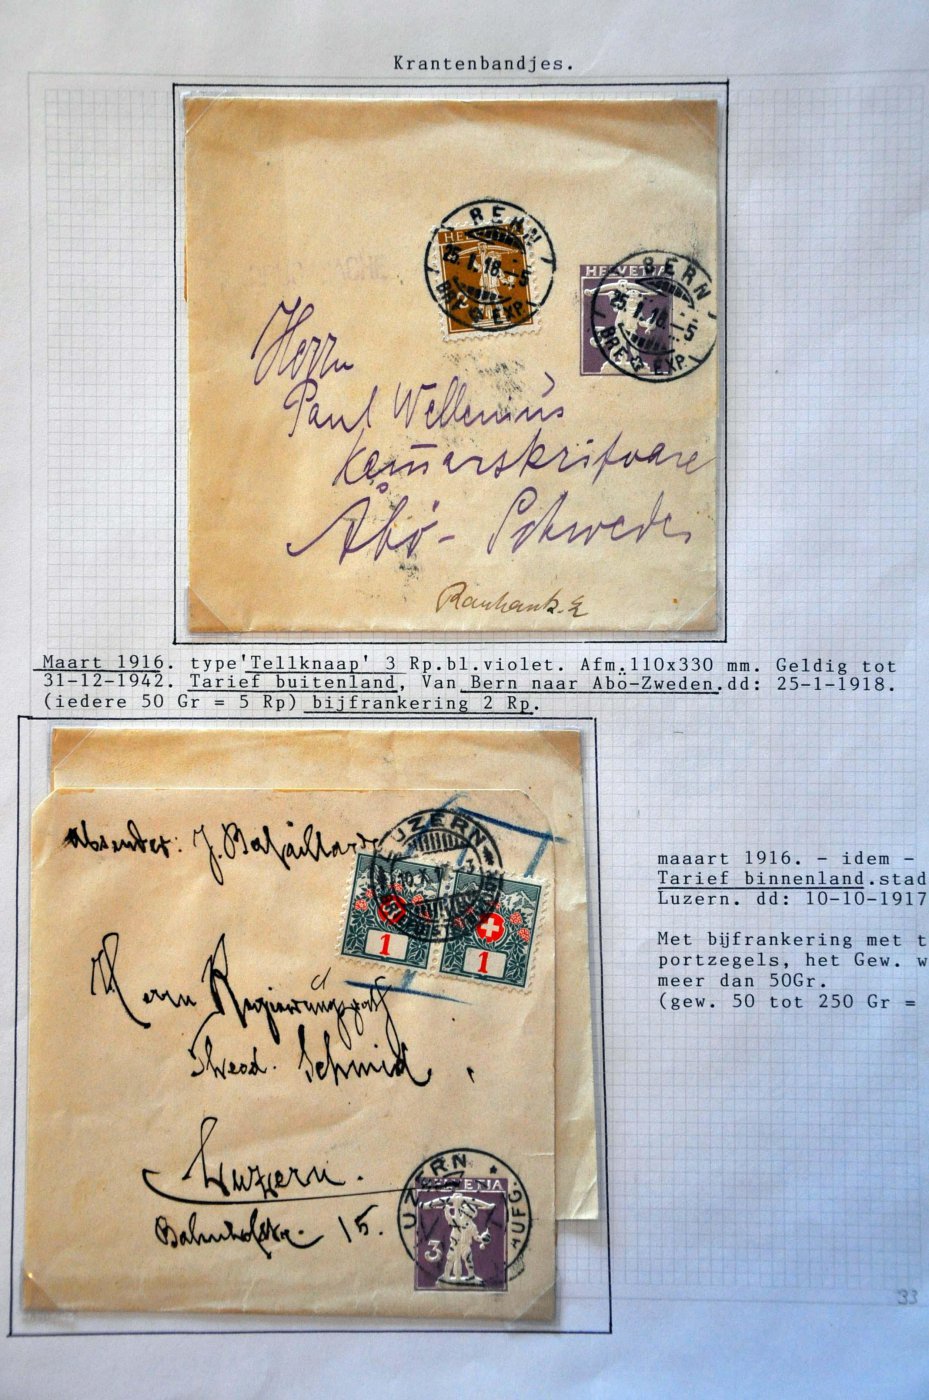 Krantenbandjes.
BERN
25.1.18.-5
BRF. EXP.
HELVETIA
BERN
25.1.18.-5
BRF. EXP.
HELVETIA
Herrn
Paul Wellenius
Åbö - Schweden
Maart 1916. type'Tellknaap' 3 Rp.bl.violet. Afm.110x330 mm. Geldig tot
31-12-1942. Tarief buitenland, Van Bern naar Abö-Zweden.dd: 25-1-1918.
(iedere 50 Gr = 5 Rp) bijfrankering 2 Rp.
Absender: J. Bataillard
LUZERN
10.X.17
1
1
Herrn Regierungsrath
Theod. Schmid,
Luzern.
Bahnhofstr. 15.
LUZERN
AUFG.
HELVETIA
3
maaart 1916. - idem -
Tarief binnenland.stad
Luzern. dd: 10-10-1917
Met bijfrankering met t
portzegels, het Gew. w
meer dan 50Gr.
(gew. 50 tot 250 Gr =
33